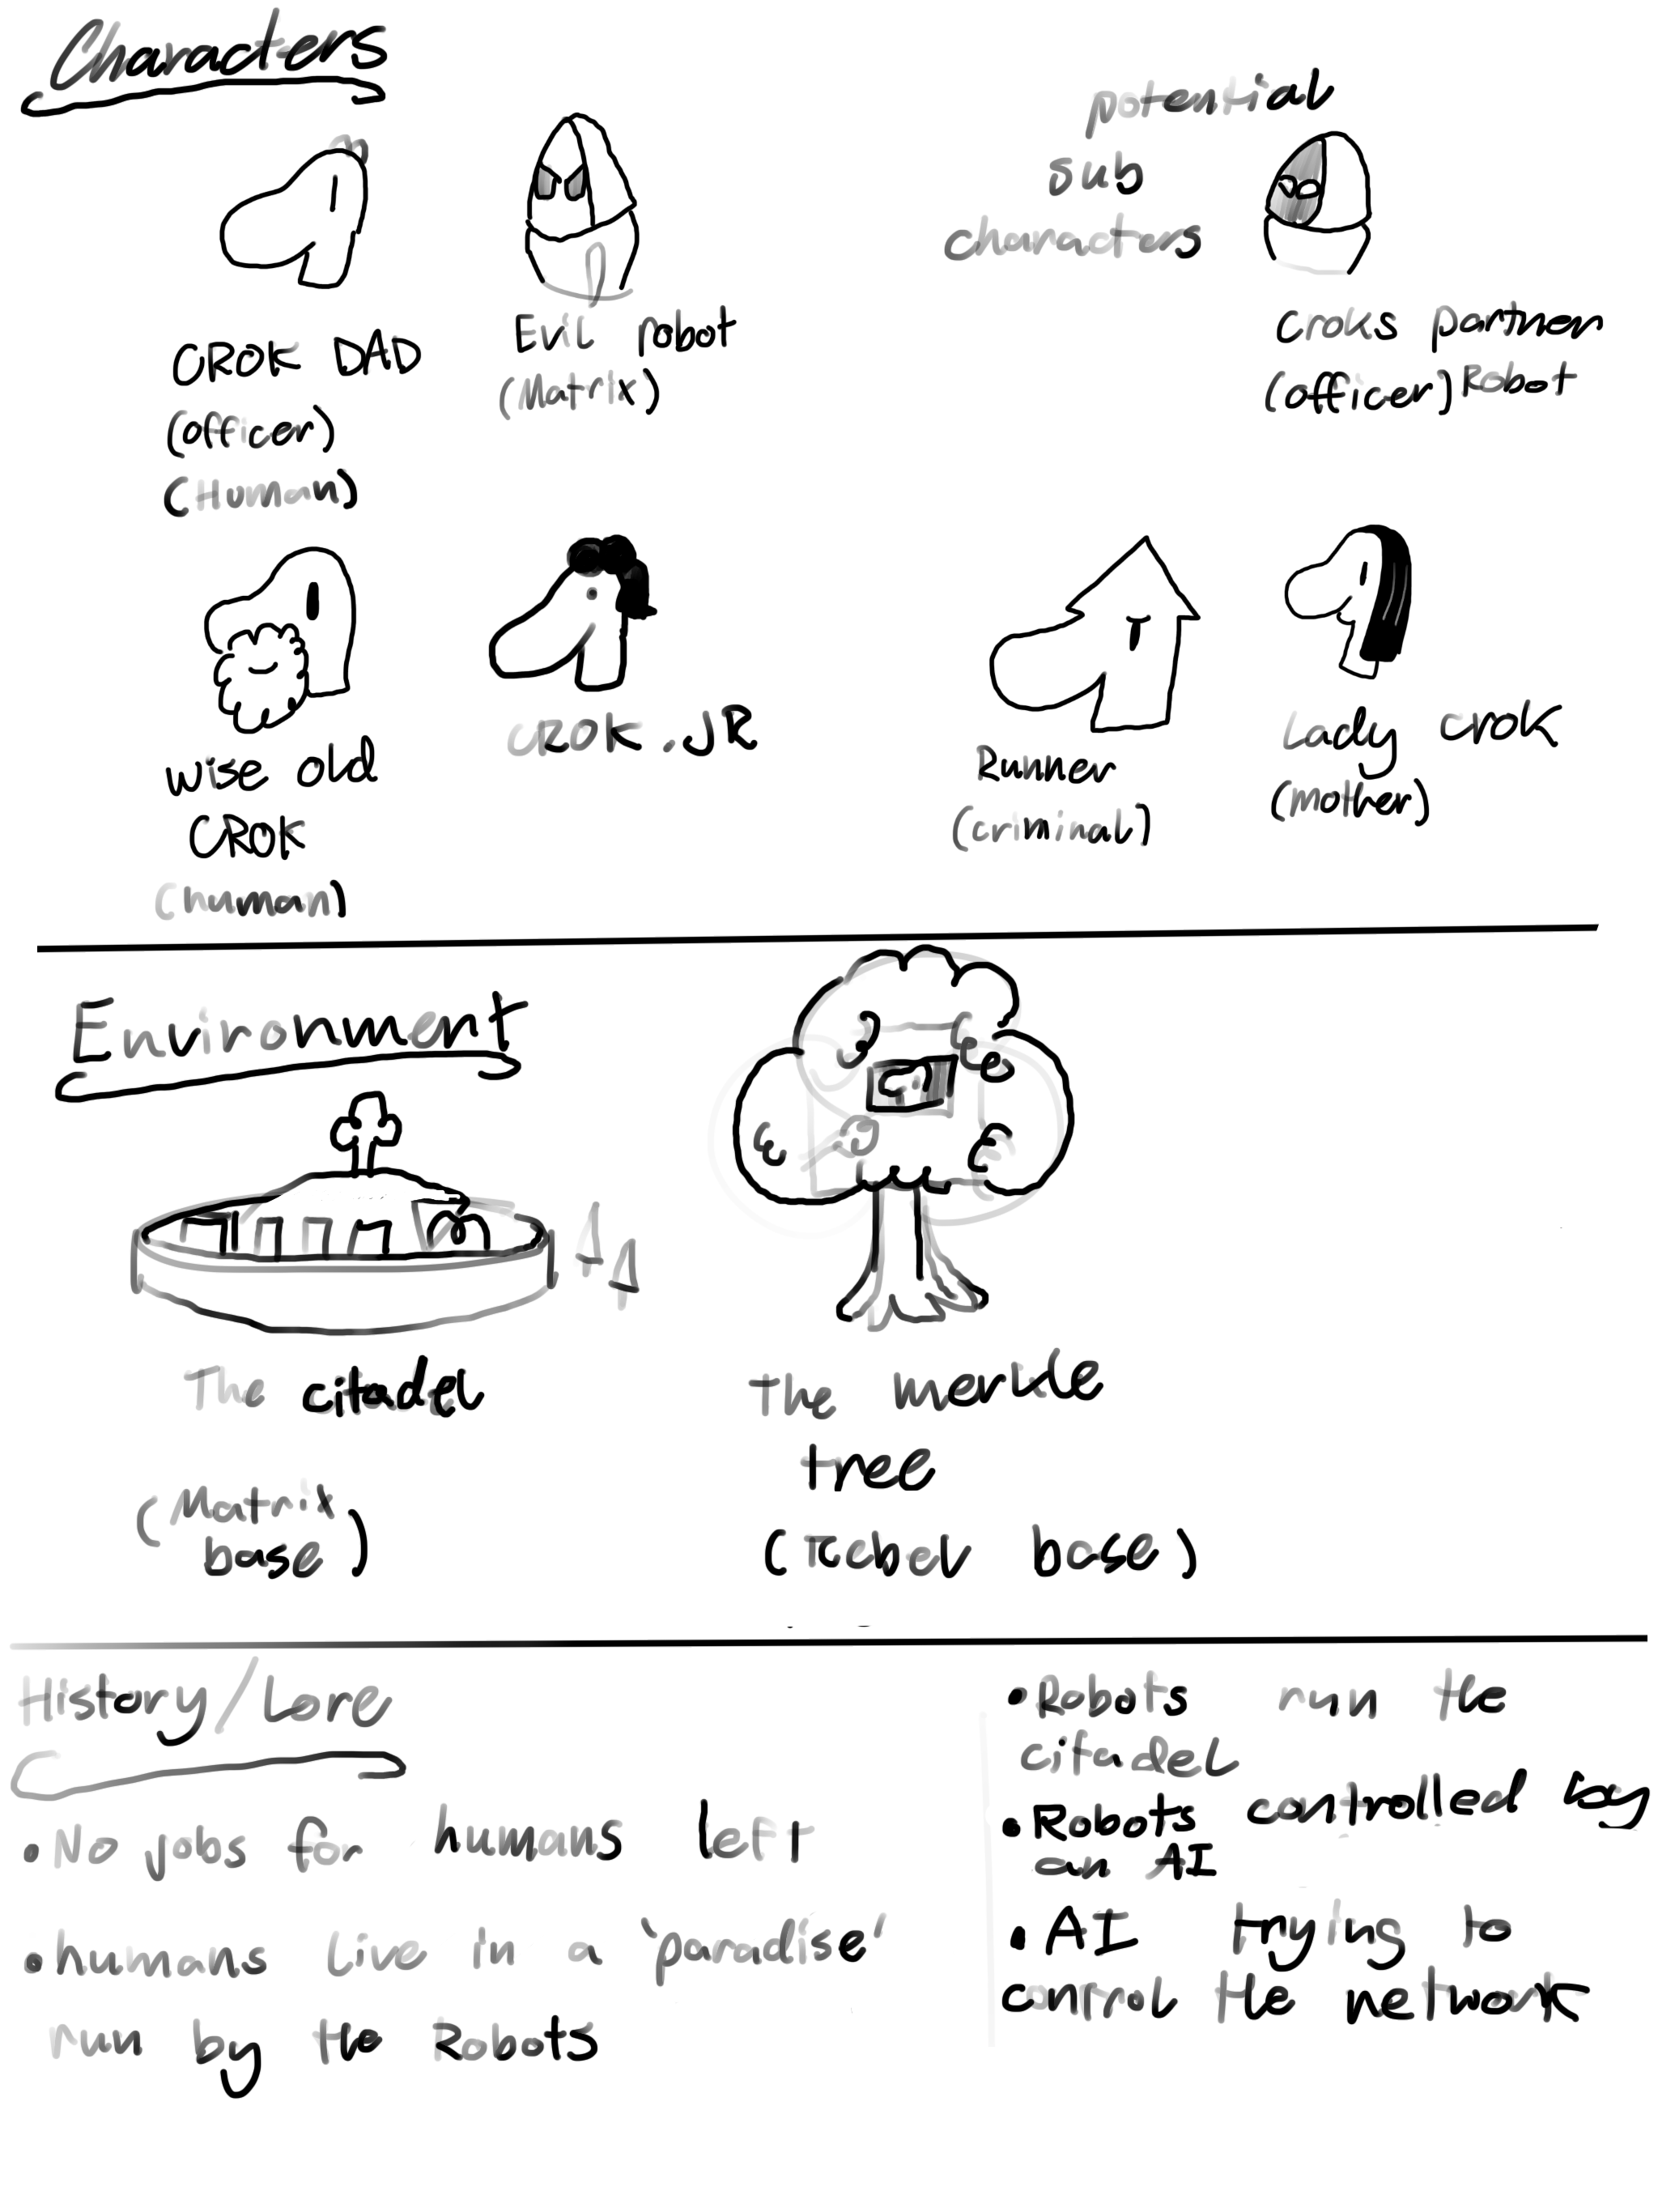 Characters
CROK DAD
(officer)
(Human)
Evil robot
(Matrix)
potential
sub
characters
Croks partner
(officer) Robot
wise old
CROK
(human)
CROK.JR
Runner
(criminal)
Lady CROK
(mother)
Environment
The citadel
(Matrix
base)
The merkle
tree
(Rebel base)
History/Lore
•No jobs for humans left
•humans live in a 'paradise'
run by the Robots
•Robots run the
citadel
•Robots controlled by
an AI
•AI trying to
control the network